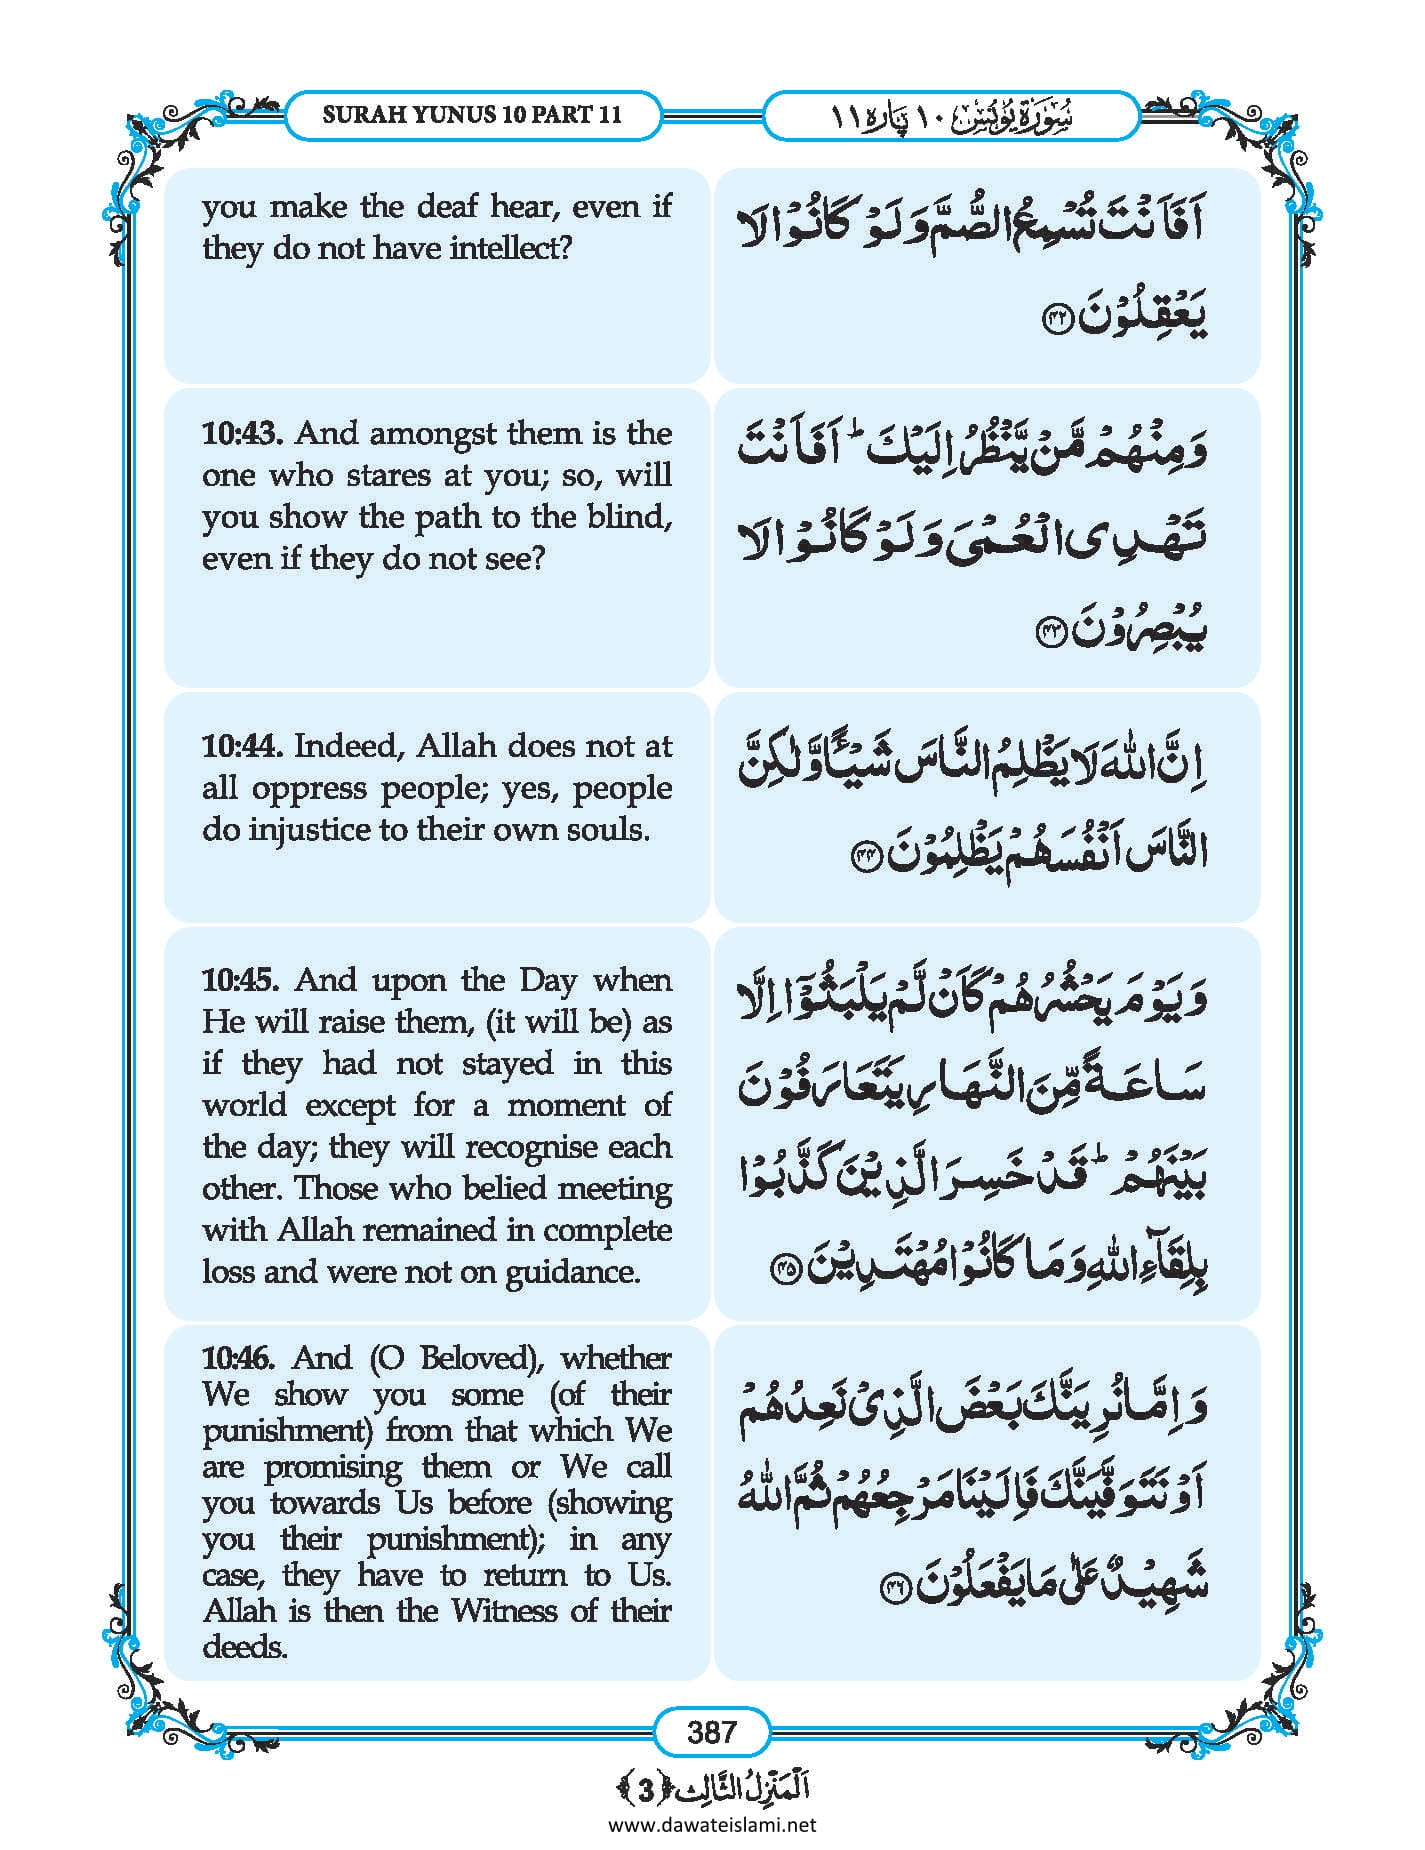 SURAH YUNUS 10 PART 11
سُوْرَةُ يُوْنُس ١٠ پَارَہ ١١
you make the deaf hear, even if
they do not have intellect?
اَفَاَنْتَ تُسْمِعُ الصُّمَّ وَلَوْ كَانُوْا لَا
يَعْقِلُوْنَ ﴿۴۲﴾
10:43. And amongst them is the
one who stares at you; so, will
you show the path to the blind,
even if they do not see?
وَمِنْهُمْ مَّنْ يَّنْظُرُ اِلَيْكَ ؕ اَفَاَنْتَ
تَهْدِی الْعُمْیَ وَلَوْ كَانُوْا لَا
يُبْصِرُوْنَ ﴿۴۳﴾
10:44. Indeed, Allah does not at
all oppress people; yes, people
do injustice to their own souls.
اِنَّ اللّٰهَ لَا يَظْلِمُ النَّاسَ شَيْـًٔا وَّلٰكِنَّ
النَّاسَ اَنْفُسَهُمْ يَظْلِمُوْنَ ﴿۴۴﴾
10:45. And upon the Day when
He will raise them, (it will be) as
if they had not stayed in this
world except for a moment of
the day; they will recognise each
other. Those who belied meeting
with Allah remained in complete
loss and were not on guidance.
وَيَوْمَ يَحْشُرُهُمْ كَاَنْ لَّمْ يَلْبَثُوْۤا اِلَّا
سَاعَةً مِّنَ النَّهَارِ يَتَعَارَفُوْنَ
بَيْنَهُمْ ؕ قَدْ خَسِرَ الَّذِيْنَ كَذَّبُوْا
بِلِقَآءِ اللّٰهِ وَمَا كَانُوْا مُهْتَدِيْنَ ﴿۴۵﴾
10:46. And (O Beloved), whether
We show you some (of their
punishment) from that which We
are promising them or We call
you towards Us before (showing
you their punishment); in any
case, they have to return to Us.
Allah is then the Witness of their
deeds.
وَ اِمَّا نُرِيَنَّكَ بَعْضَ الَّذِیْ نَعِدُهُمْ
اَوْ نَتَوَفَّيَنَّكَ فَاِلَيْنَا مَرْجِعُهُمْ ثُمَّ اللّٰهُ
شَهِيْدٌ عَلٰى مَا يَفْعَلُوْنَ ﴿۴۶﴾
387
اَلْمَنْزِلُ الثَّالِث ﴿3﴾
www.dawateislami.net